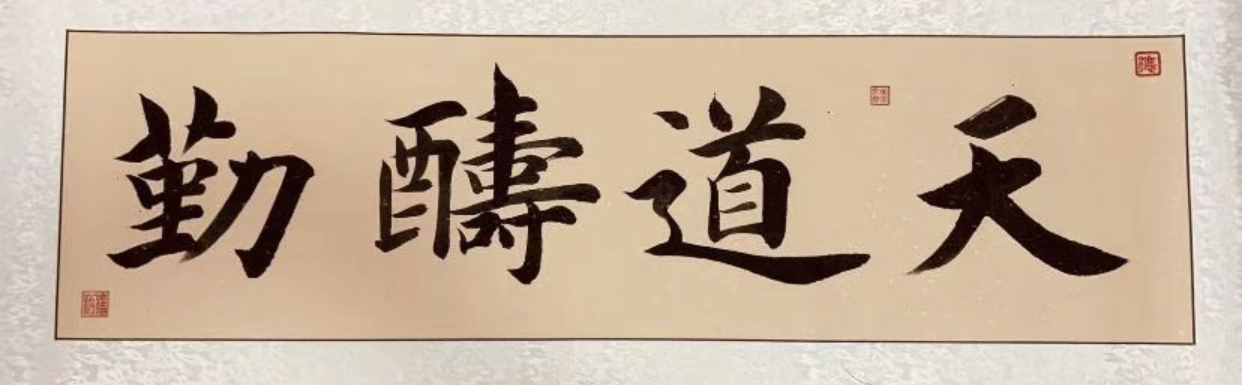 天道醻勤